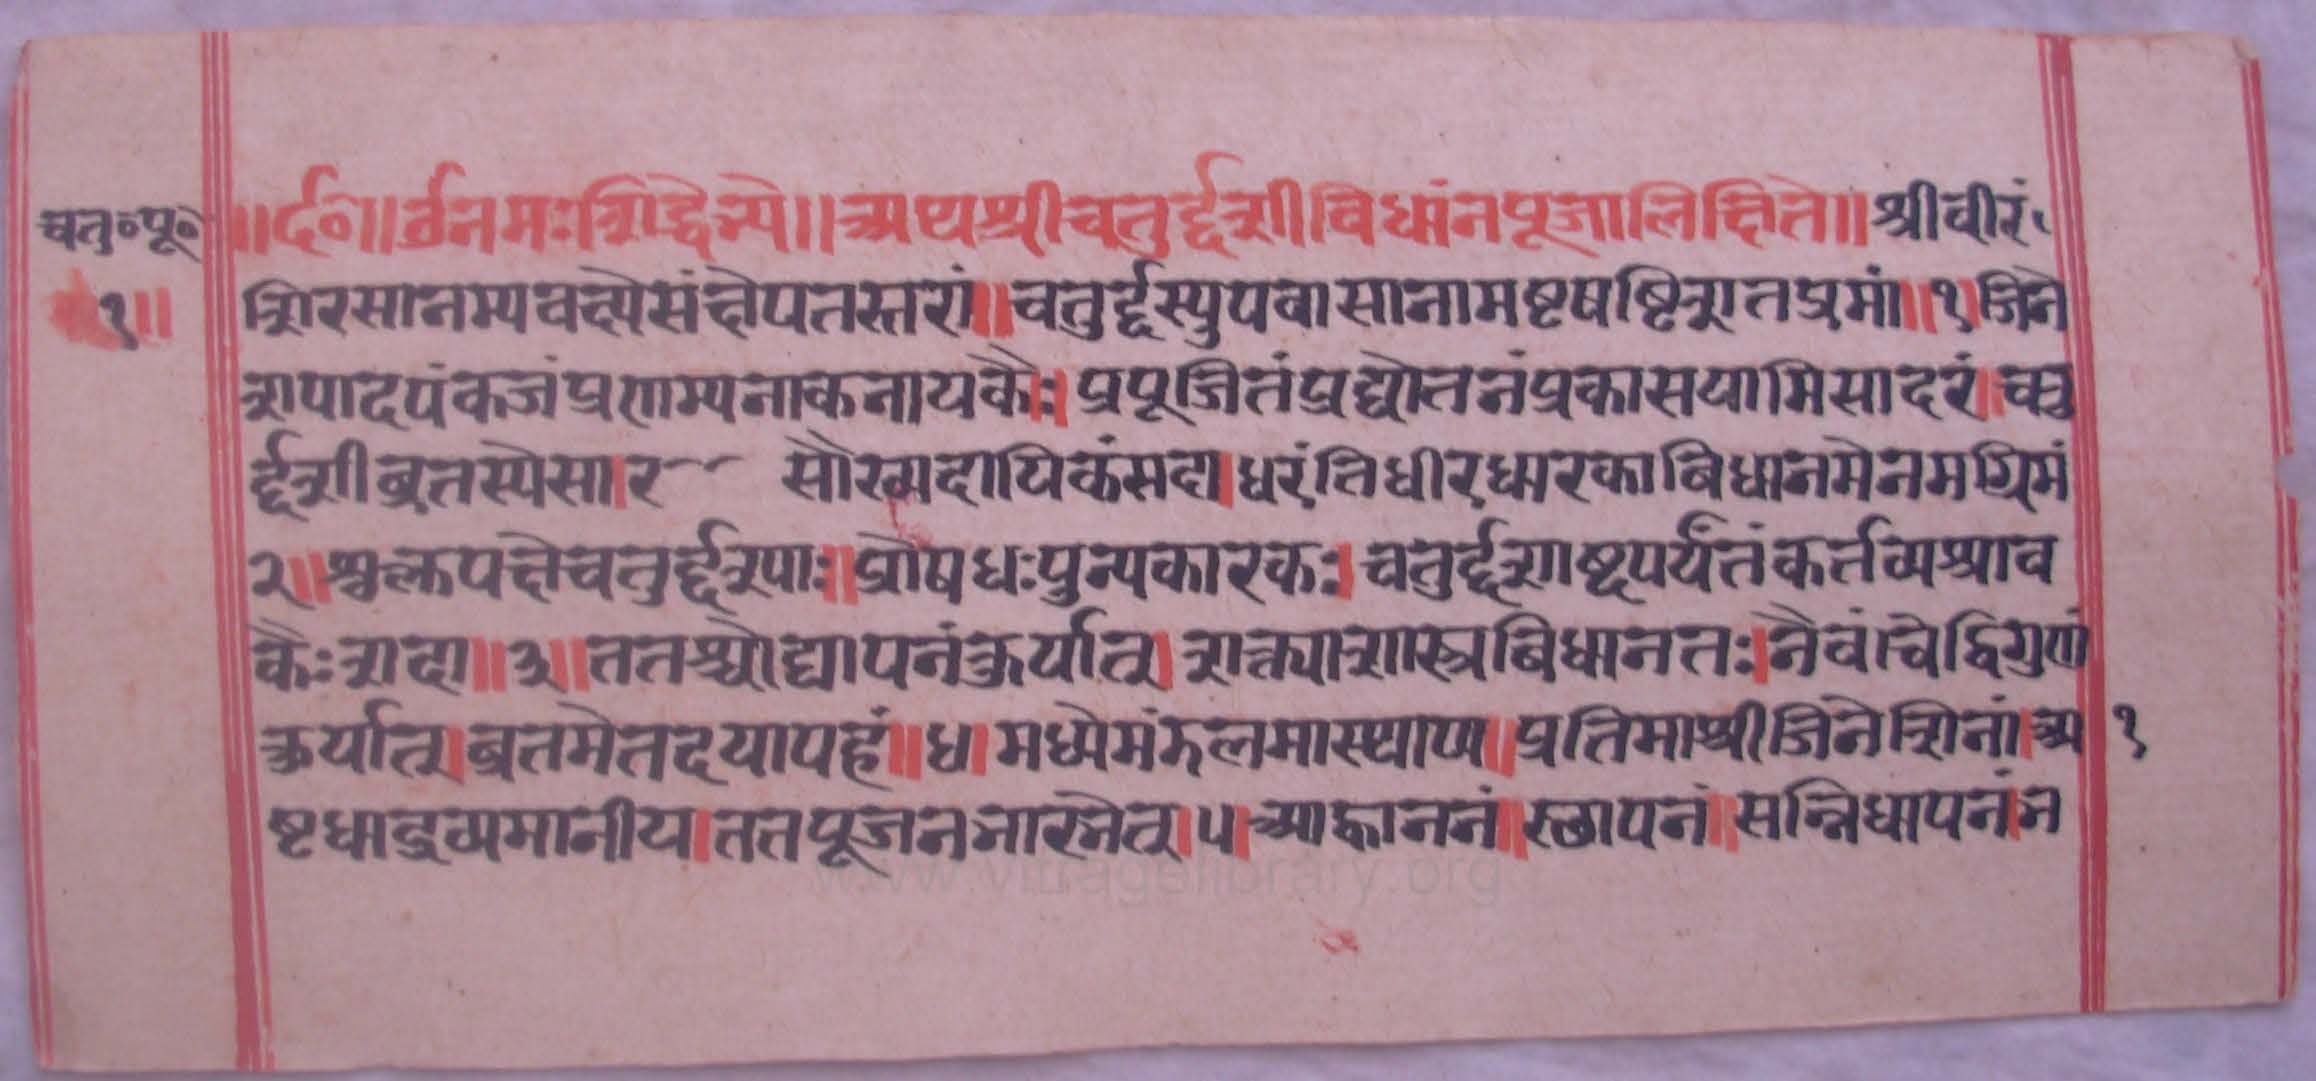 चतु॰पू॰
॥र्द॰॥ र्उनमःशिद्धेन्यो॥अथश्रीचतुर्द्दशीविधांनपूजालिक्षिते॥श्रीवीरं
१॥
शिरसानम्यवक्ष्येसंक्षेपतस्तरां॥चतुर्द्दस्युपवासानामष्टषष्टिशतप्रमां॥१॥जिने
शपादपंकजंप्रणम्यनाकनायकैः।प्रपूजितंप्रद्योतनंप्रकासयामिसादरं॥
र्द्दशीब्रतस्येसा।र सौख्यदायिकंसदा।धरंतिधीरधारकाबिधानमेनमग्रिमं
२॥श्रुक्लपक्षेचतुर्द्दश्याः॥प्रौषधःपुन्यकारकः।चतुर्द्दशाष्टपर्यंतंकर्तव्यश्राव
कैःशदा॥३॥ततश्चोद्यापनंकुर्यात्।शक्त्याशास्त्रबिधानतः।नैवांचेद्विगुणं
कुर्यात्।ब्रतमेतदयापहं॥४।मध्येमंडलमास्थाप्य॥प्रतिमाश्रीजिनेशिनां।अ
१
ष्टधाद्रव्यमानीय।ततपूजनमारभेत्।५।आह्वाननं॥स्छापनं॥सन्निधापनं।न
www.vitragelibrary.org